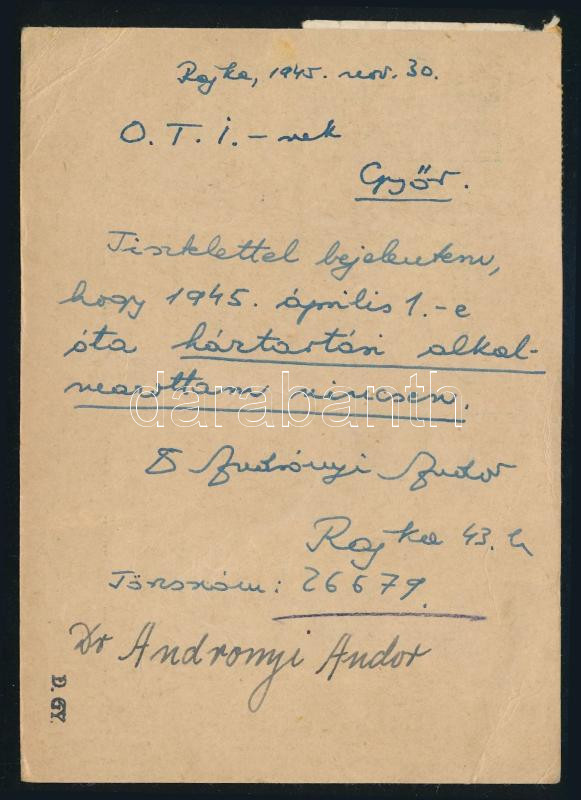 Rajka, 1945. nov. 30.
O. T. I. - nek
Győr.
Tisztelettel bejelentem,
hogy 1945. április 1.-e
óta háztartási alkal-
mazottam nincsen.
Andrónyi Andor
Rajka 43. h
Törzsszám: 26679.
Dr Andronyi Andor
D. GY.
darabanth